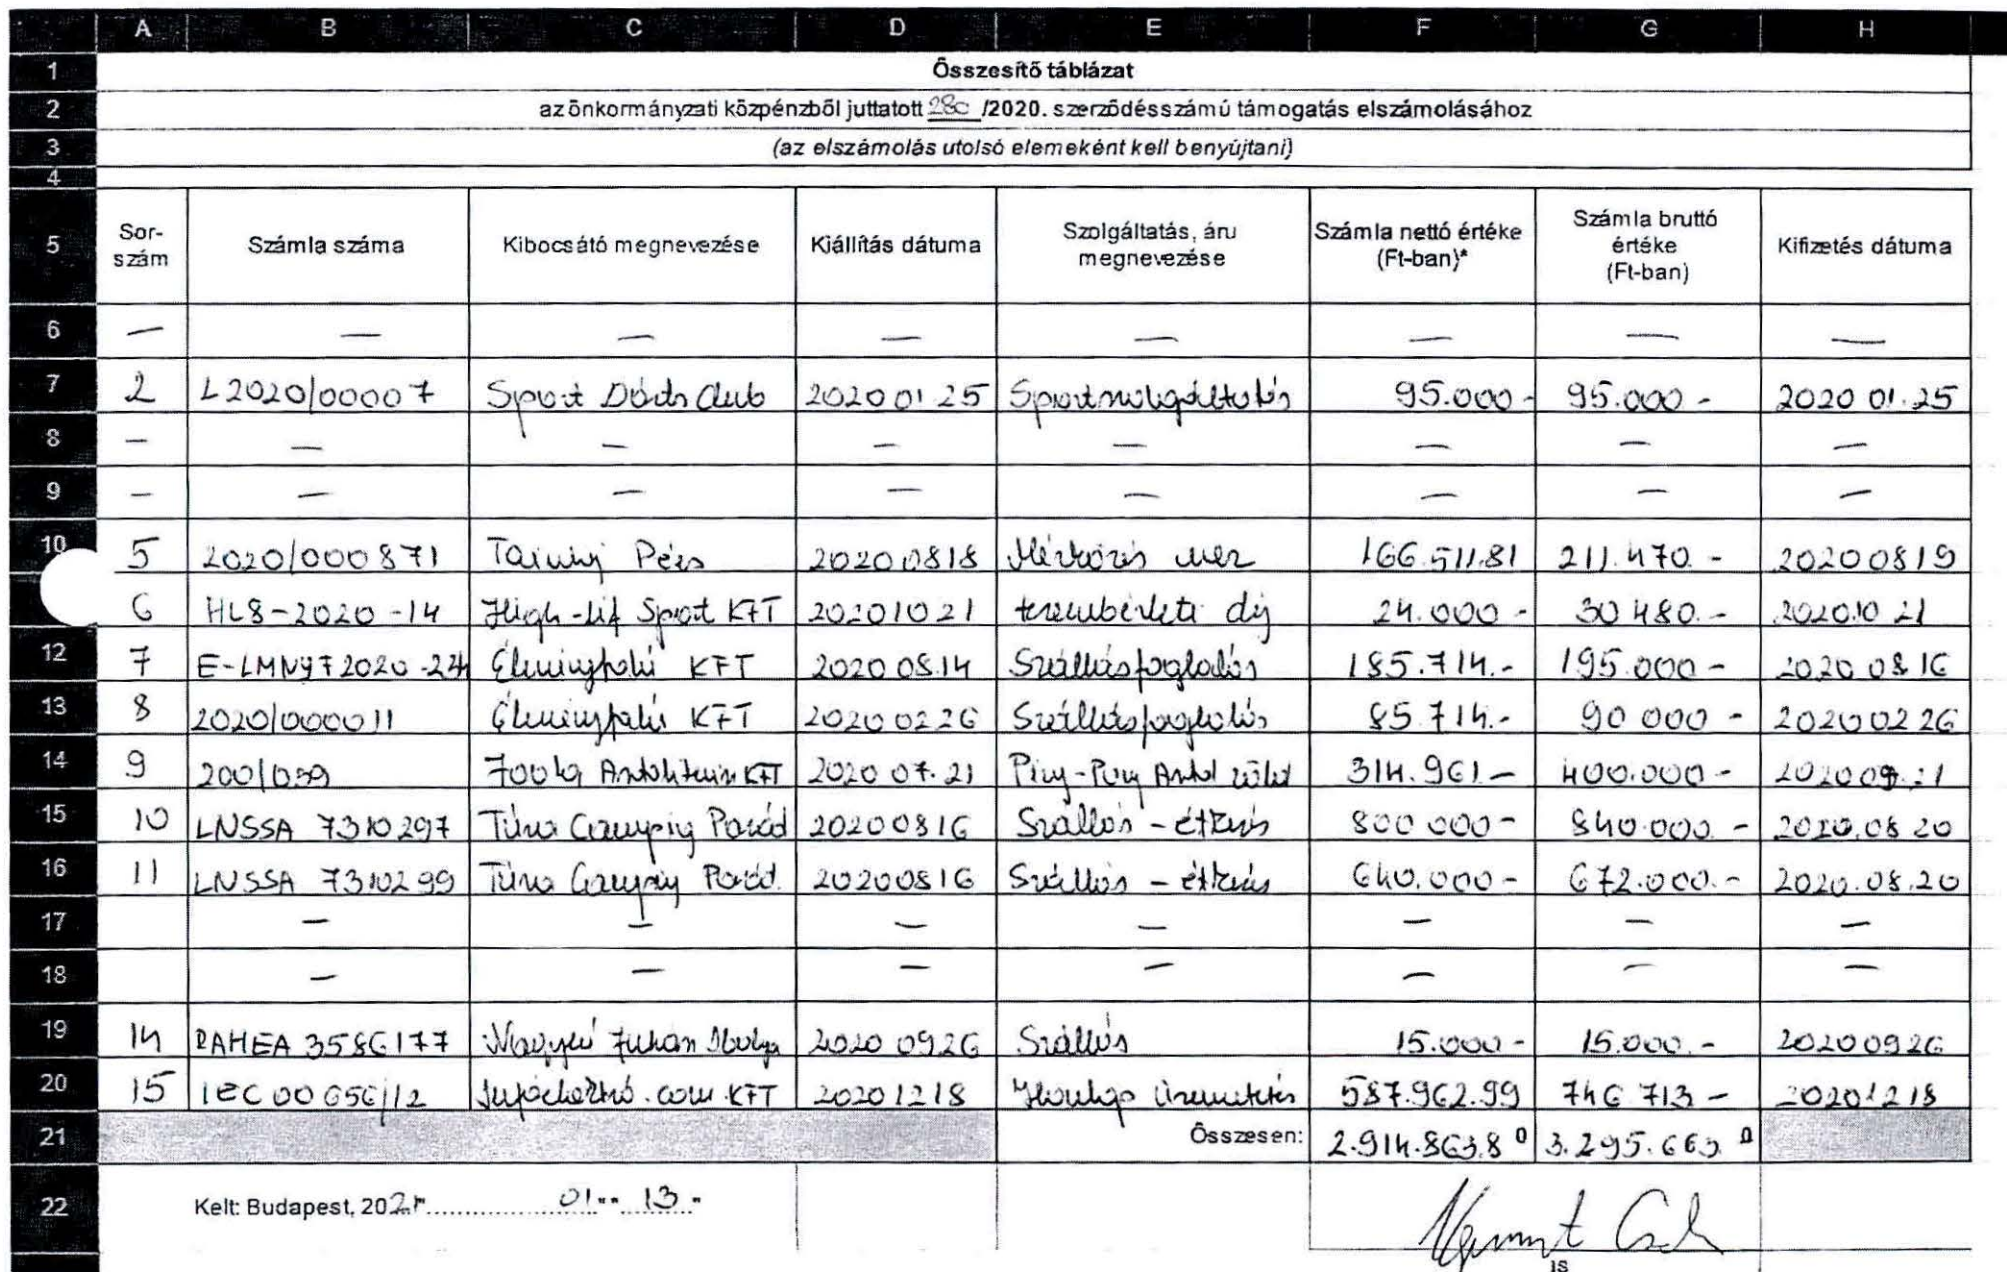 A B C D E F G H
1 Összesítő táblázat
2 az önkormányzati közpénzből juttatott 280 /2020. szerződésszámú támogatás elszámolásához
3 (az elszámolás utolsó elemeként kell benyújtani)
4
5 Sor-szám Számla száma Kibocsátó megnevezése Kiállítás dátuma Szolgáltatás, áru megnevezése Számla nettó értéke (Ft-ban)* Számla bruttó értéke (Ft-ban) Kifizetés dátuma
6 — — — — — — — —
7 2 L2020/00007 Sport Club 2020 01 25 Sportszolgáltatás 95.000- 95.000- 2020 01.25
8 — — — — — — — —
9 — — — — — — — —
10 5 2020/000871 2020 0818 Mérkőzés mez 166.511.81 211.470.- 2020 0819
6 HL8-2020-14 Sport KFT 2020 10 21 terembérleti díj 24.000- 30 480.- 2020.10 21
12 7 Élményfalu KFT 2020 08.14 Szállásfoglalás 185.714.- 195.000- 2020 08 16
13 8 2020/000011 Élményfalu KFT 2020 02 26 Szállásfoglalás 85.714.- 90 000- 2020 02 26
14 9 KFT 2020 07.21 314.961- 400.000-
15 10 LNSSA 7310297 Túra Camping Parád 2020 0816 Szállás - étkezés 800 000- 840.000.- 2020.08 20
16 11 LNSSA 7310299 Túra Camping Parád. 2020 0816 Szállás - étkezés 640.000- 672.000.- 2020.08.20
17 — — — — — — —
18 — — — — — — —
19 14 2020 0926 Szállás 15.000- 15.000.- 2020 0926
20 15 KFT 2020 1218 Honlap üzemeltetés 587.962.99 746 713- 2020 1218
21 Összesen: 2.914.863.8 0 3.295.663 0
22 Kelt: Budapest, 2021 01 13